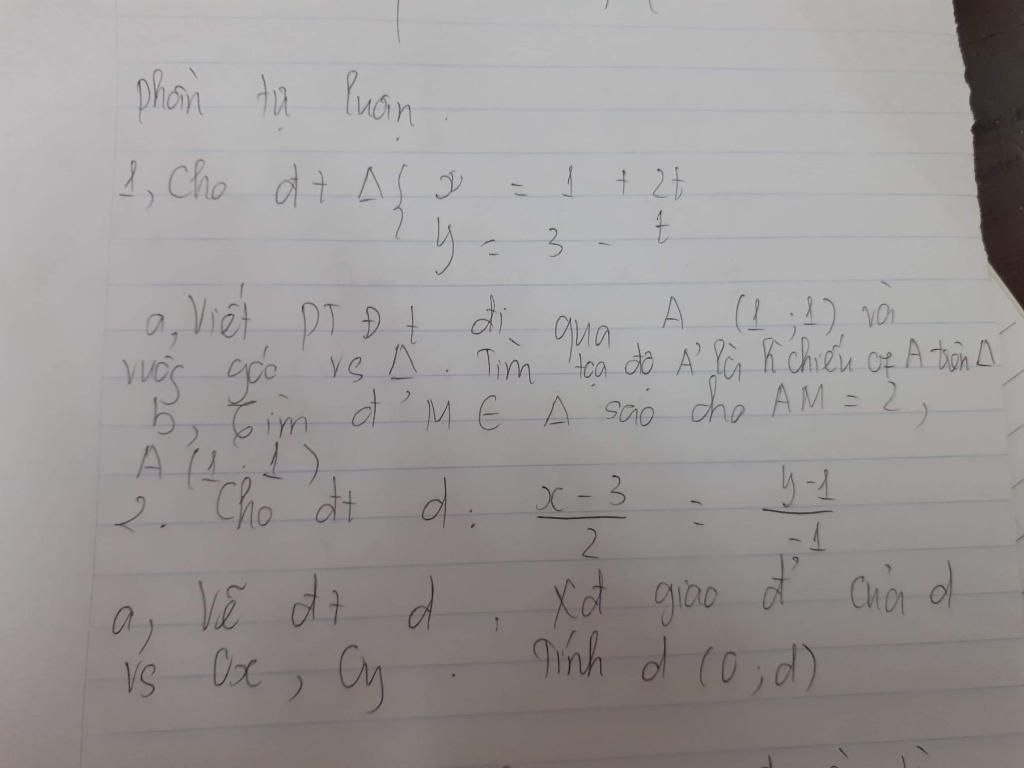 phần tự luận.
1, Cho đt Δ { x = 1 + 2t
y = 3 - t
a, Viết PT Đt đi qua A (1 ; 1) và
vuôg góc vs Δ . Tìm toạ độ A' là h chiếu of A trên Δ
b, Tìm đ' M ∈ Δ sao cho AM = 2,
A (1 . 1)
2. Cho đt d : (x - 3)/2 = (y - 1)/-1
a, Vẽ đt d , Xđ giao đ' của d
vs Ox , Oy . Tính d (O ; d)